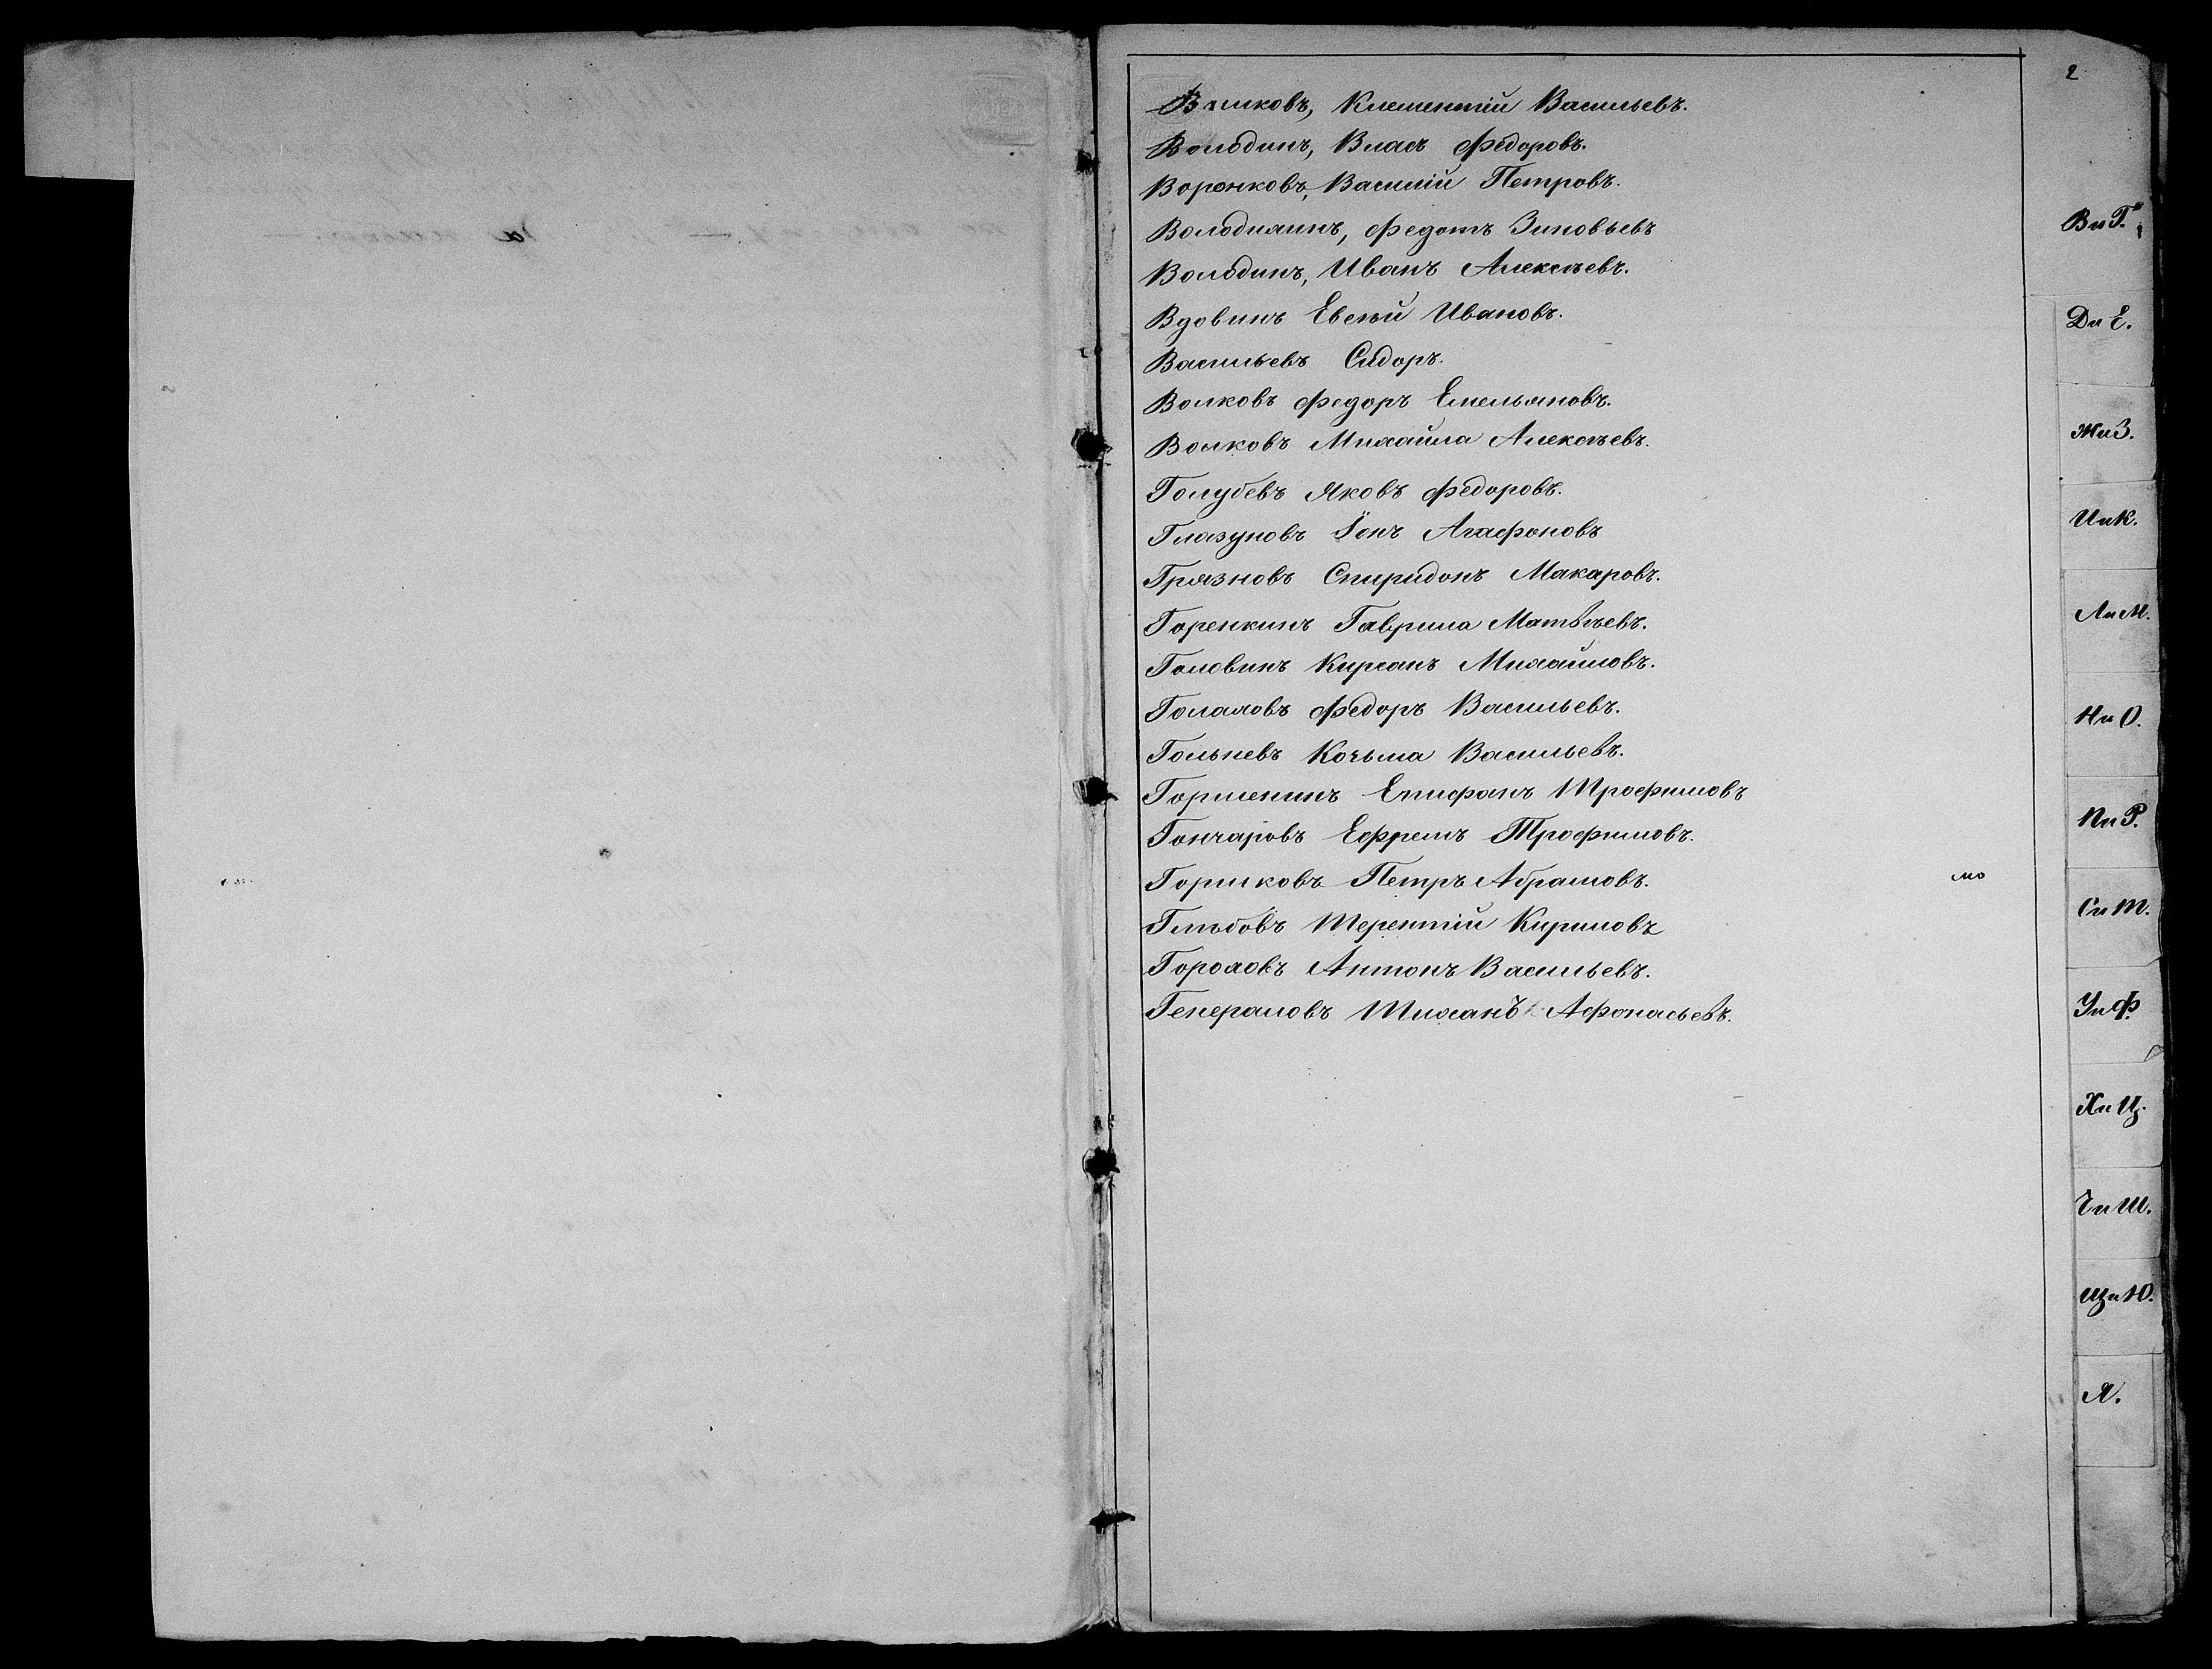 2
Климентій Васильевъ.
Володинъ, Власъ Ѳедоровъ.
Воронковъ, Василій Петровъ.
Володиминъ, Федотъ Зиновьевъ
Володинъ, Иванъ Алексѣевъ.
Вдовинъ Евсѣй Ивановъ.
Васильевъ Сидоръ.
Волковъ Федоръ Емельяновъ.
Волковъ Михайла Алексѣевъ.
Голубевъ Яковъ Федоровъ.
Глазуновъ Іонъ Агафоновъ
Грязновъ Спиридонъ Макаровъ.
Горенкинъ Гаврила Матвѣевъ.
Головинъ Кирсанъ Михайловъ.
Голаховъ Федоръ Васильевъ.
Гольневъ Козьма Васильевъ.
Горшенинъ Епифанъ Трофимовъ
Гончаровъ Ефремъ Трофимовъ.
Горшковъ Петръ Абрамовъ.
Глѣбовъ Терентій Кириловъ
Гороховъ Антонъ Васильевъ.
Генераловъ Тиханъ Афонасьевъ.
В и Г.
Д и Е.
Ж и З.
И и К.
Л и М.
Н и О.
П и Р.
С и Т.
У и Ф.
Х и Ц.
Ч и Ш.
Щ и Ю.
Я.